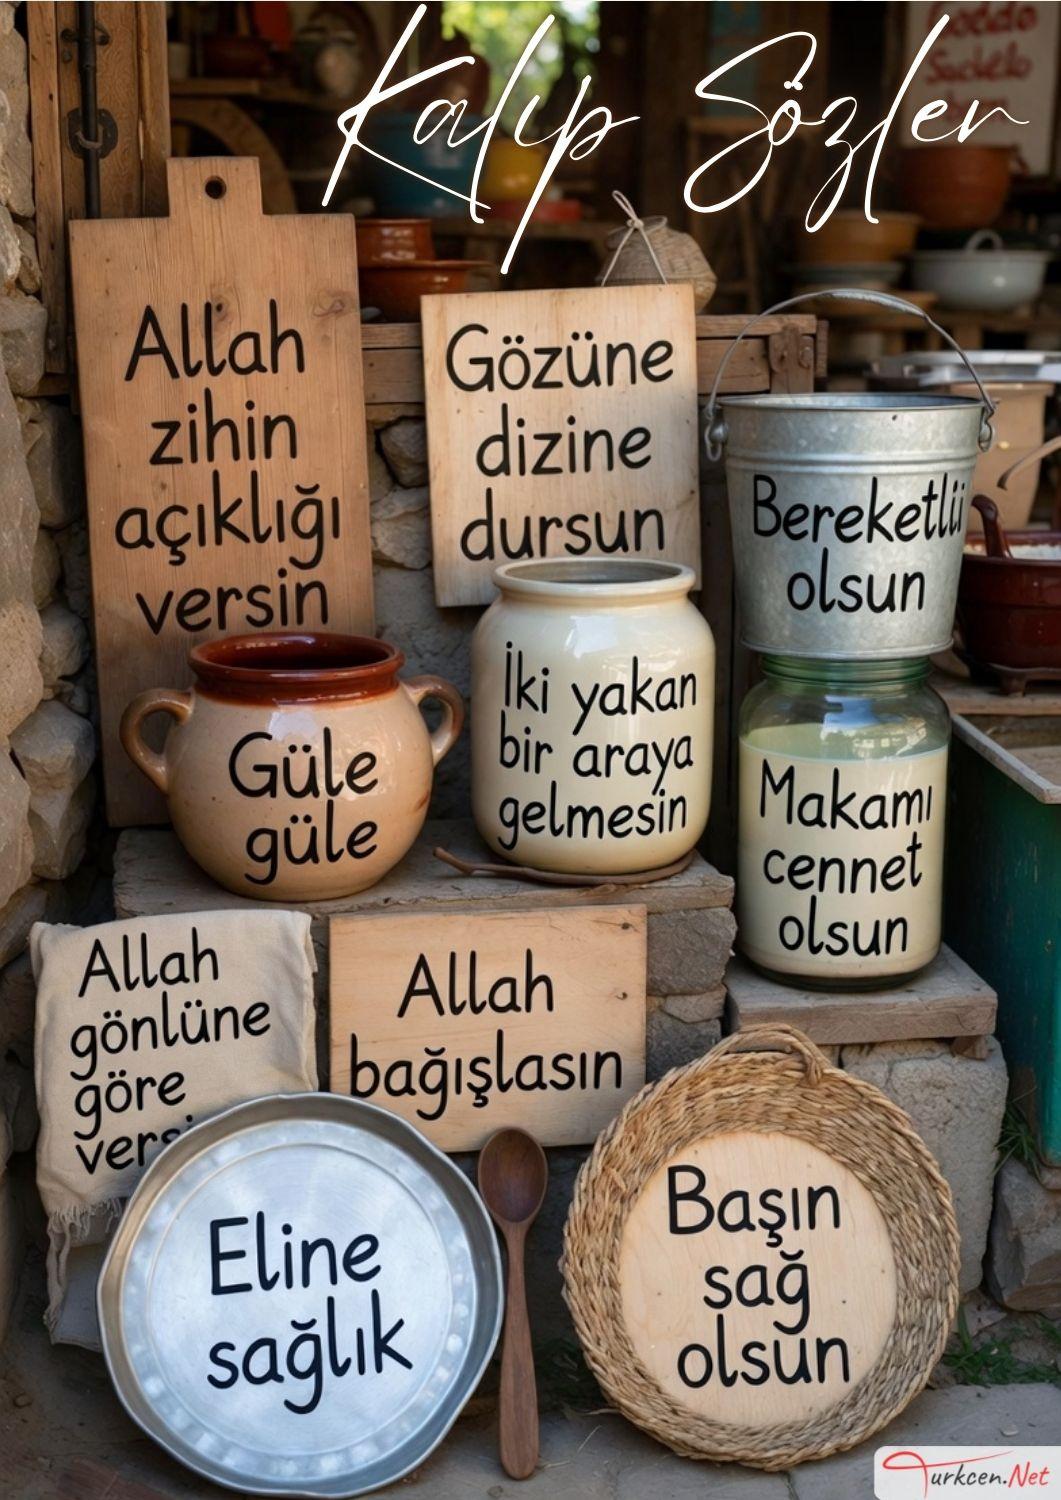 Kalıp Sözler
Allah
zihin
açıklığı
versin
Gözüne
dizine
dursun
Bereketlii
olsun
Güle
güle
İki yakan
bir araya
gelmesin
Makamı
cennet
olsun
Allah
gönlüne
göre
Allah
bağışlasın
Eline
sağlık
Başın
sağ
olsun
Turkcen.Net